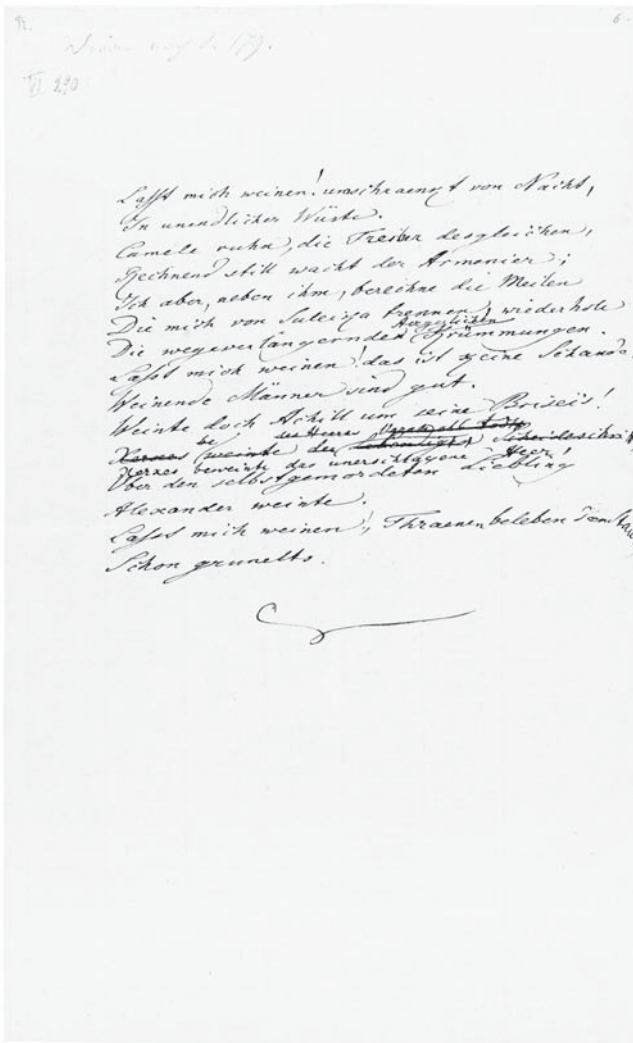 S. 179.
VI 290
Lasst mich weinen! umschraenckt von Nacht,
In unendlicher Wüste.
Camele ruhn, die Treiber desgleichen,
Rechnend still wacht der Armenier;
Ich aber, neben ihm, berechne die Meilen
Die mich von Suleica trennen, wiederhole
Die wegeverlängernden Aergerlichen Krümmungen.
Lasst mich weinen! das ist keine Schande.
Weinende Männer sind gut.
Weinte doch Achill um seine Briseis!
Xerxes beweinte
Xerxes beweinte das unerschlagene Heer!
Über den selbstgemordeten Liebling
Alexander weinte.
Lasst mich weinen!, Thraenen beleben den Stau
Schon grunelts.